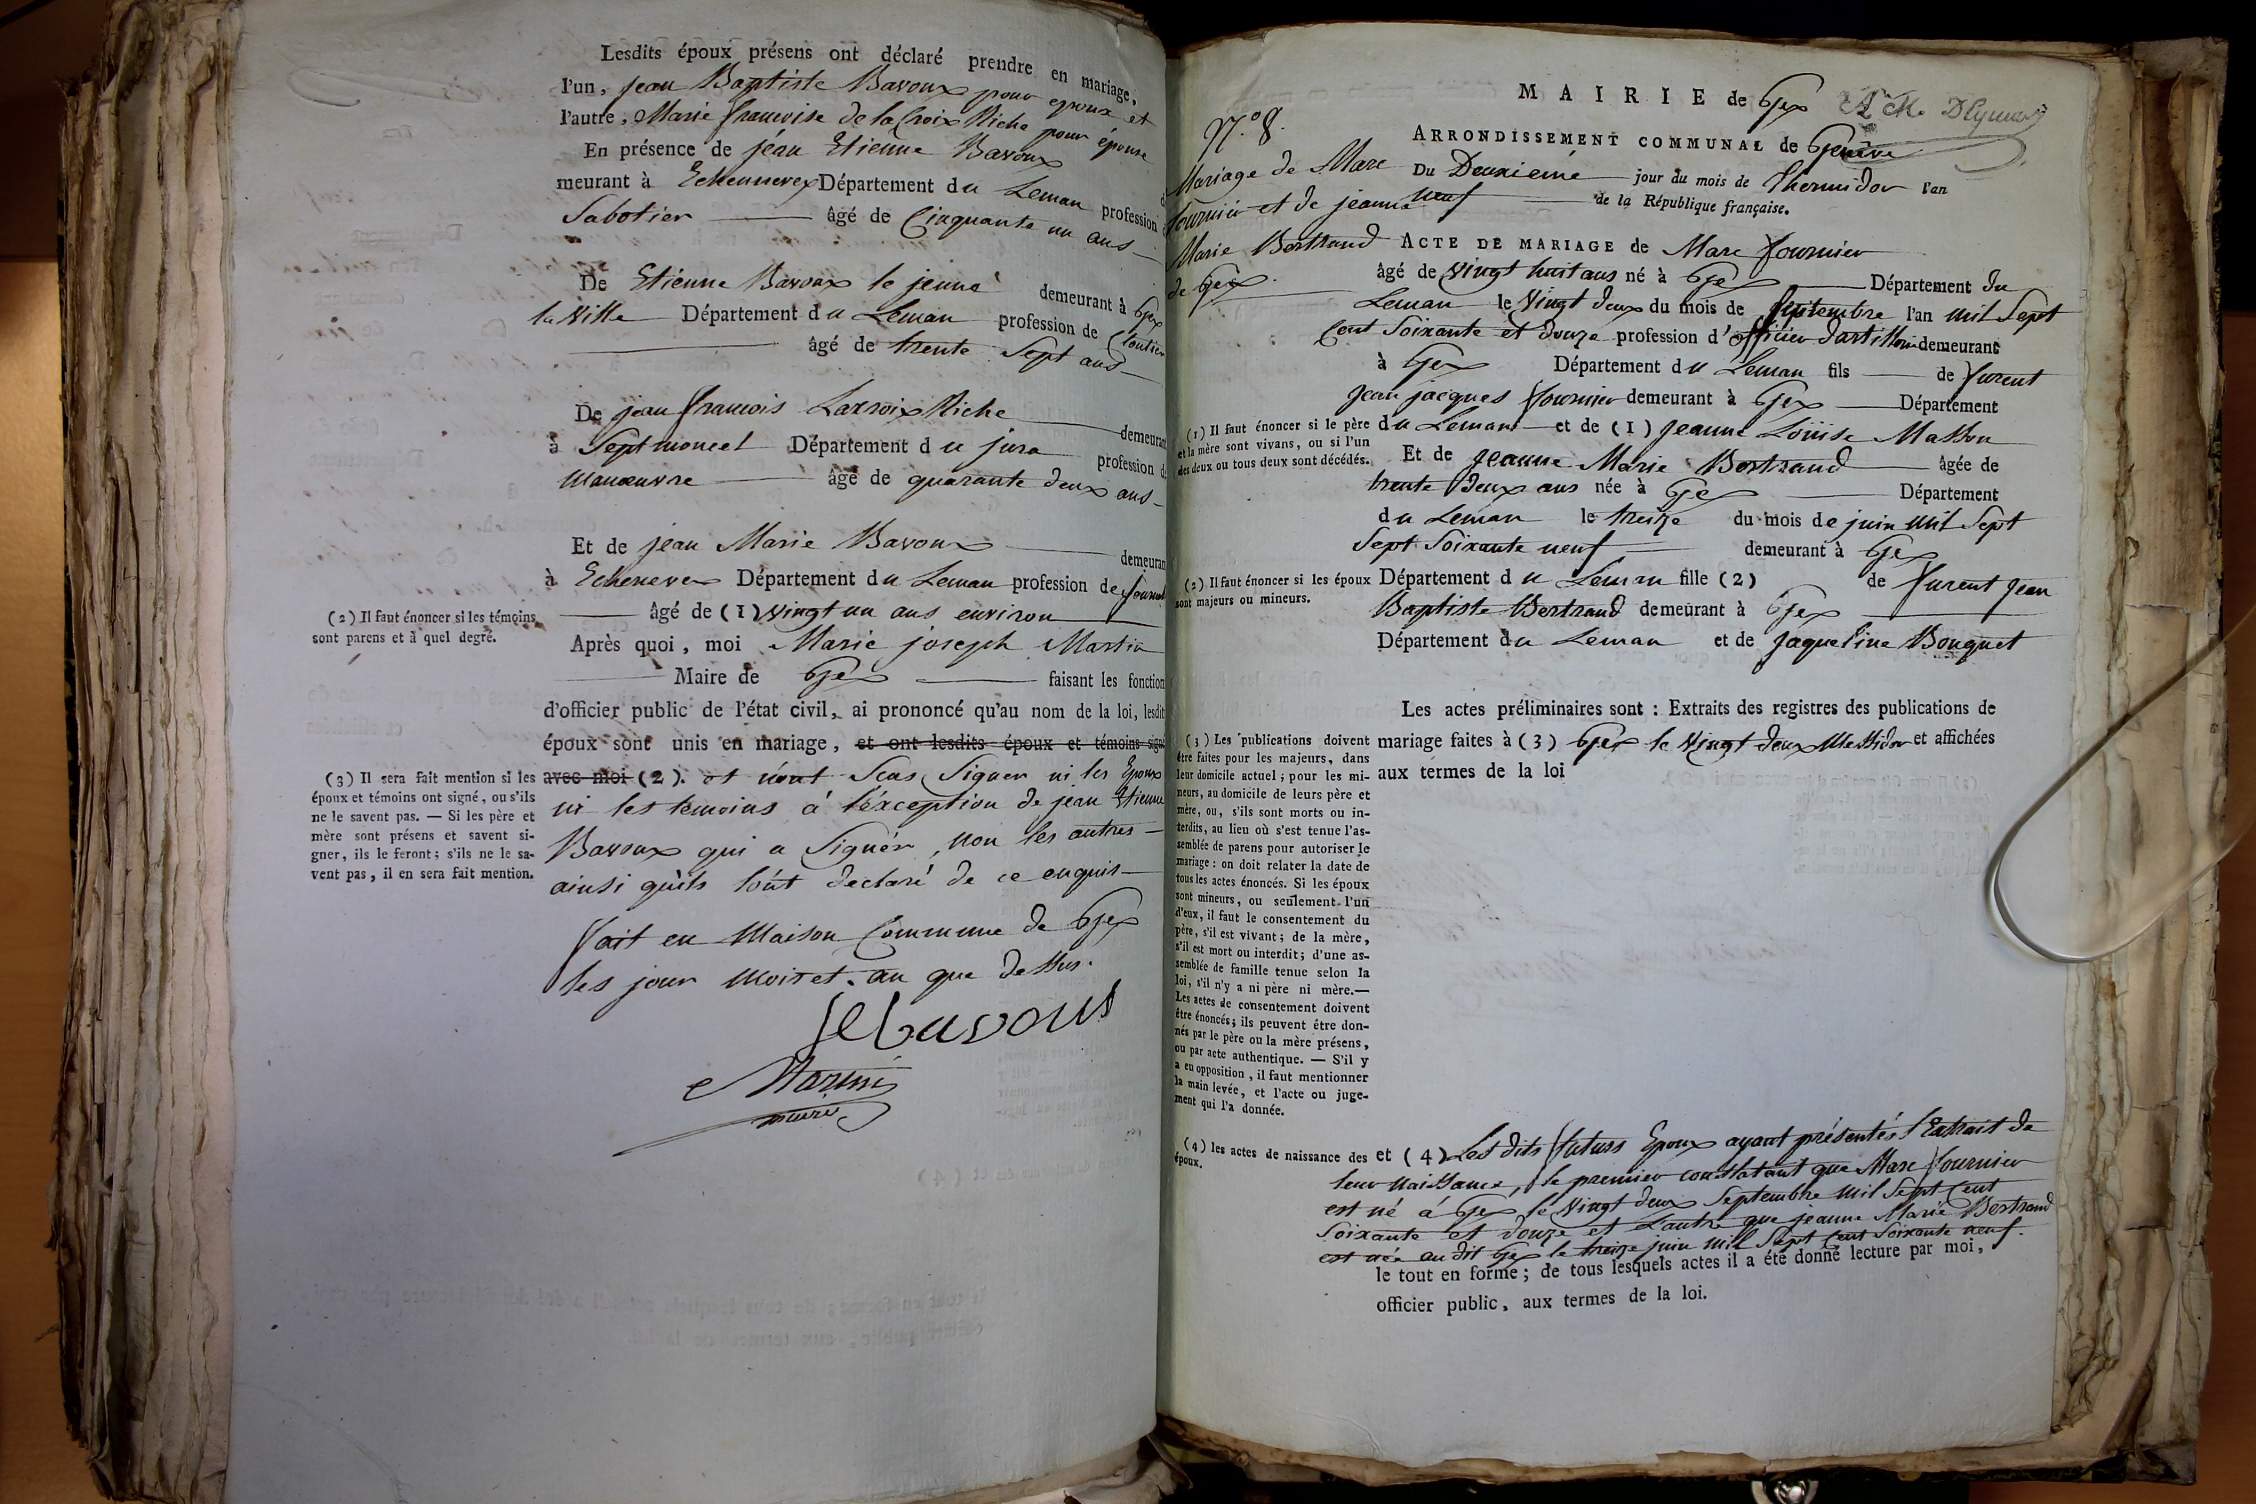 Lesdits époux présens ont déclaré prendre en mariage,
l'un, jean Baptiste Bavoux pour epoux et
l'autre, Marie francoise de la Croix Riche pour épouse
En présence de jéan Etienne Bavoux
meurant à Echennevex Département du Leman profession
Sabotier âgé de Cinquante un ans
De Etienne Bavoux le jeune demeurant à Gex
la ville Département du Leman profession de Cloutier
âgé de trente Sept ans
De jean francois Lacroix Riche demeurant
à Septmoncel Département du jura profession d
Manoeuvre âgé de quarante deux ans
Et de jean Marie Bavoux demeuran
à Echenevex Département du Leman profession de
âgé de (1) vingt un ans environ
(2) Il faut énoncer si les témoins
sont parens et à quel degré.
Après quoi, moi Marie joseph Martin
Maire de Gex faisant les fonction
d'officier public de l'état civil, ai prononcé qu'au nom de la loi, lesdit
époux sont unis en mariage, et ont lesdits époux et témoins signé
avec moi (2). et n'ont Scus Signer ni les Epoux
ni les temoins à l'éxception de jean Etienne
Bavoux qui a Signér, non les autres
ainsi qu'ils l'ont declaré de ce enquis
(3) Il sera fait mention si les
époux et témoins ont signé, ou s'ils
ne le savent pas. — Si les père et
mère sont présens et savent si-
gner, ils le feront; s'ils ne le sa-
vent pas, il en sera fait mention.
fait en Maison Commune de Gex
les jour mois et an que dessus.
Jebavous
Martin
maire
MAIRIE de Gex
N.º 8.
Mariage de Marc
fournier et de jeanne
Marie Bertrand
de Gex.
ARRONDISSEMENT COMMUNAL de Genève
Du Deuxieme jour du mois de Thermidor l'an
neuf de la République française.
ACTE DE MARIAGE de Marc fournier
âgé de vingt huit ans né à Gex Département du
Leman le vingt deux du mois de Septembre l'an mil Sept
Cent Soixante et douze profession d'officier d'artillerie demeurant
à Gex Département du Leman fils de furent
Jean jacques fournier demeurant à Gex Département
du Leman et de (1) jeanne Loüise Masson
Et de jeanne Marie Bertrand âgée de
trente deux ans née à Gex Département
du Leman le treize du mois de juin mil Sept
Sept Soixante neuf demeurant à Gex
Département du Leman fille (2) de furent jean
Baptiste Bertrand demeurant à Gex
Département du Leman et de jaqueline Bouquet
(1) Il faut énoncer si le père
et la mère sont vivans, ou si l'un
des deux ou tous deux sont décédés.
(2) Il faut énoncer si les époux
sont majeurs ou mineurs.
Les actes préliminaires sont : Extraits des registres des publications de
mariage faites à (3) Gex le vingt deux Messidor et affichées
aux termes de la loi
(3) Les publications doivent
être faites pour les majeurs, dans
leur domicile actuel; pour les mi-
neurs, au domicile de leurs père et
mère, ou, s'ils sont morts ou in-
terdits, au lieu où s'est tenue l'as-
semblée de parens pour autoriser le
mariage : on doit relater la date de
tous les actes énoncés. Si les époux
sont mineurs, ou seulement l'un
d'eux, il faut le consentement du
père, s'il est vivant; de la mère,
s'il est mort ou interdit; d'une as-
semblée de famille tenue selon la
loi, s'il n'y a ni père ni mère.—
Les actes de consentement doivent
être énoncés; ils peuvent être don-
nés par le père ou la mère présens,
ou par acte authentique. — S'il y
a eu opposition, il faut mentionner
la main levée, et l'acte ou juge-
ment qui l'a donnée.
(4) les actes de naissance des
époux.
et (4) Les dits futurs Epoux ayant présentés l'Extrait de
leur naissance, le premier constatant que Marc fournier
est né à Gex le vingt deux Septembre mil Sept Cent
Soixante et douze et L'autre que jeanne Marie Bertrand
est née au dit Gex le treize juin mil Sept Cent Soixante neuf.
le tout en forme; de tous lesquels actes il a été donné lecture par moi,
officier public, aux termes de la loi.